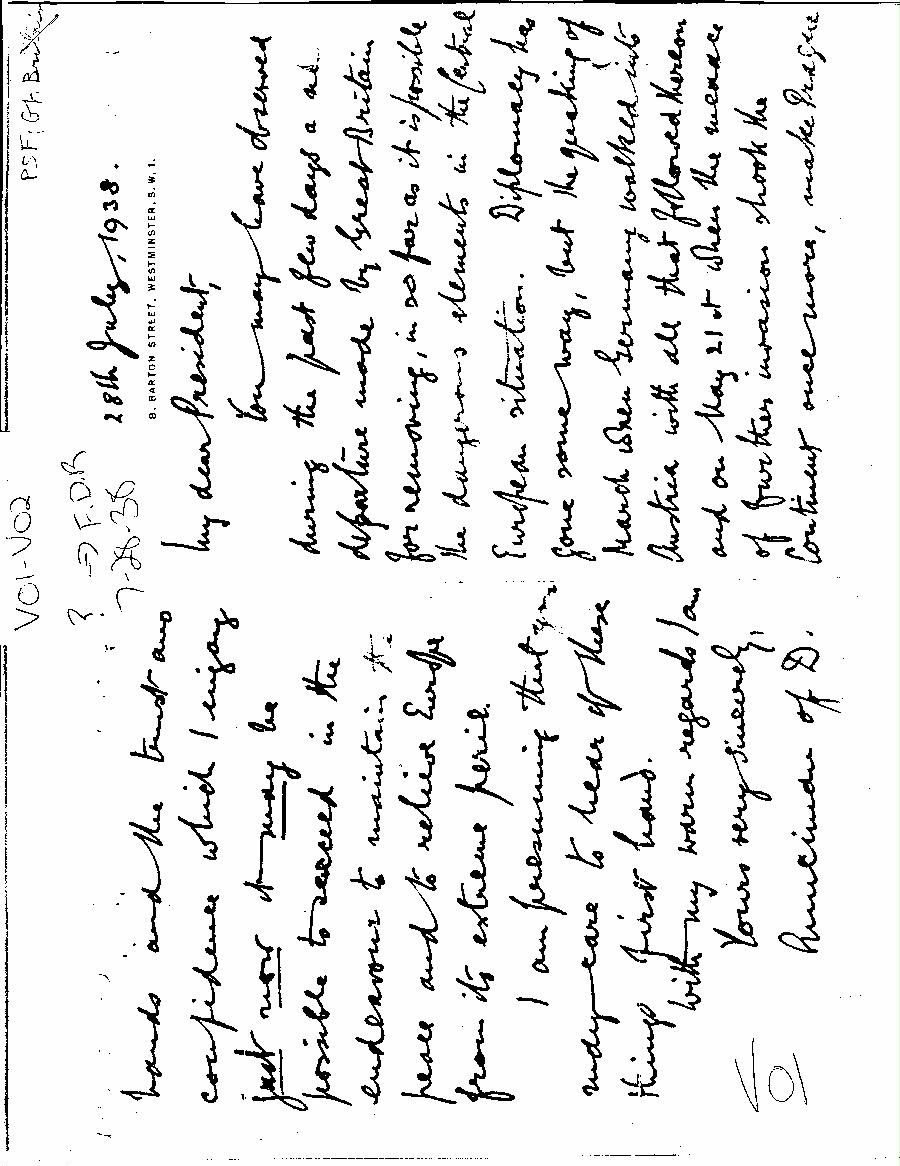 PSF; Gt. Britain
VO1-VO2
? → F.D.R
7-28-38
28th July, 1938.
8, BARTON STREET, WESTMINSTER, S.W.1.
My dear President,
You may have observed
during the past few days a
departure made by Great Britain
for removing, in so far as it is possible
the dangerous elements in the Central
European situation. Diplomacy has
gone some way, but the quaking of
March when Germany walked into
Austria with all that followed thereon
and on May 21st when the menace
of further invasion shook the
Continent once more, make Prague
hands and the trust and
confidence which I enjoy
just now it may be
possible to succeed in the
endeavour to maintain the
peace and to relieve Europe
from its extreme peril.
I am presuming that you
may care to hear of these
things first hand.
With my warm regards I am
Yours very sincerely,
Runciman of D.